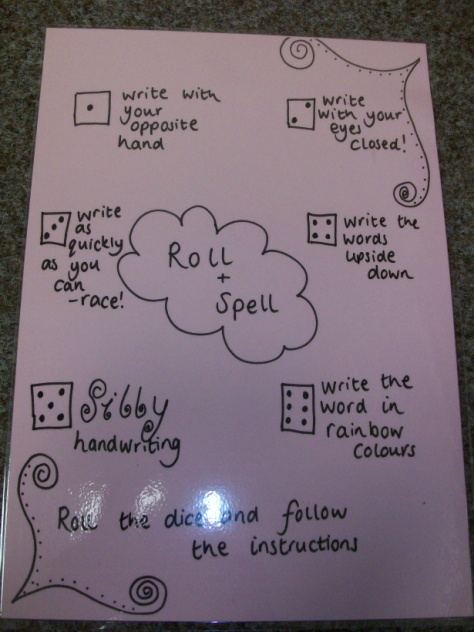 write with
your
opposite
hand
write
with your
eyes
closed!
write
as
quickly
as you
can
-race!
Roll
+
Spell
write the
words
upside
down
Silly
handwriting
write the
word in
rainbow
colours
Roll the dice and follow
the instructions